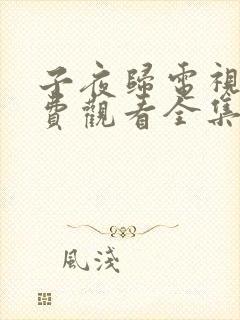 子夜歸電視
費觀看全集
風淺